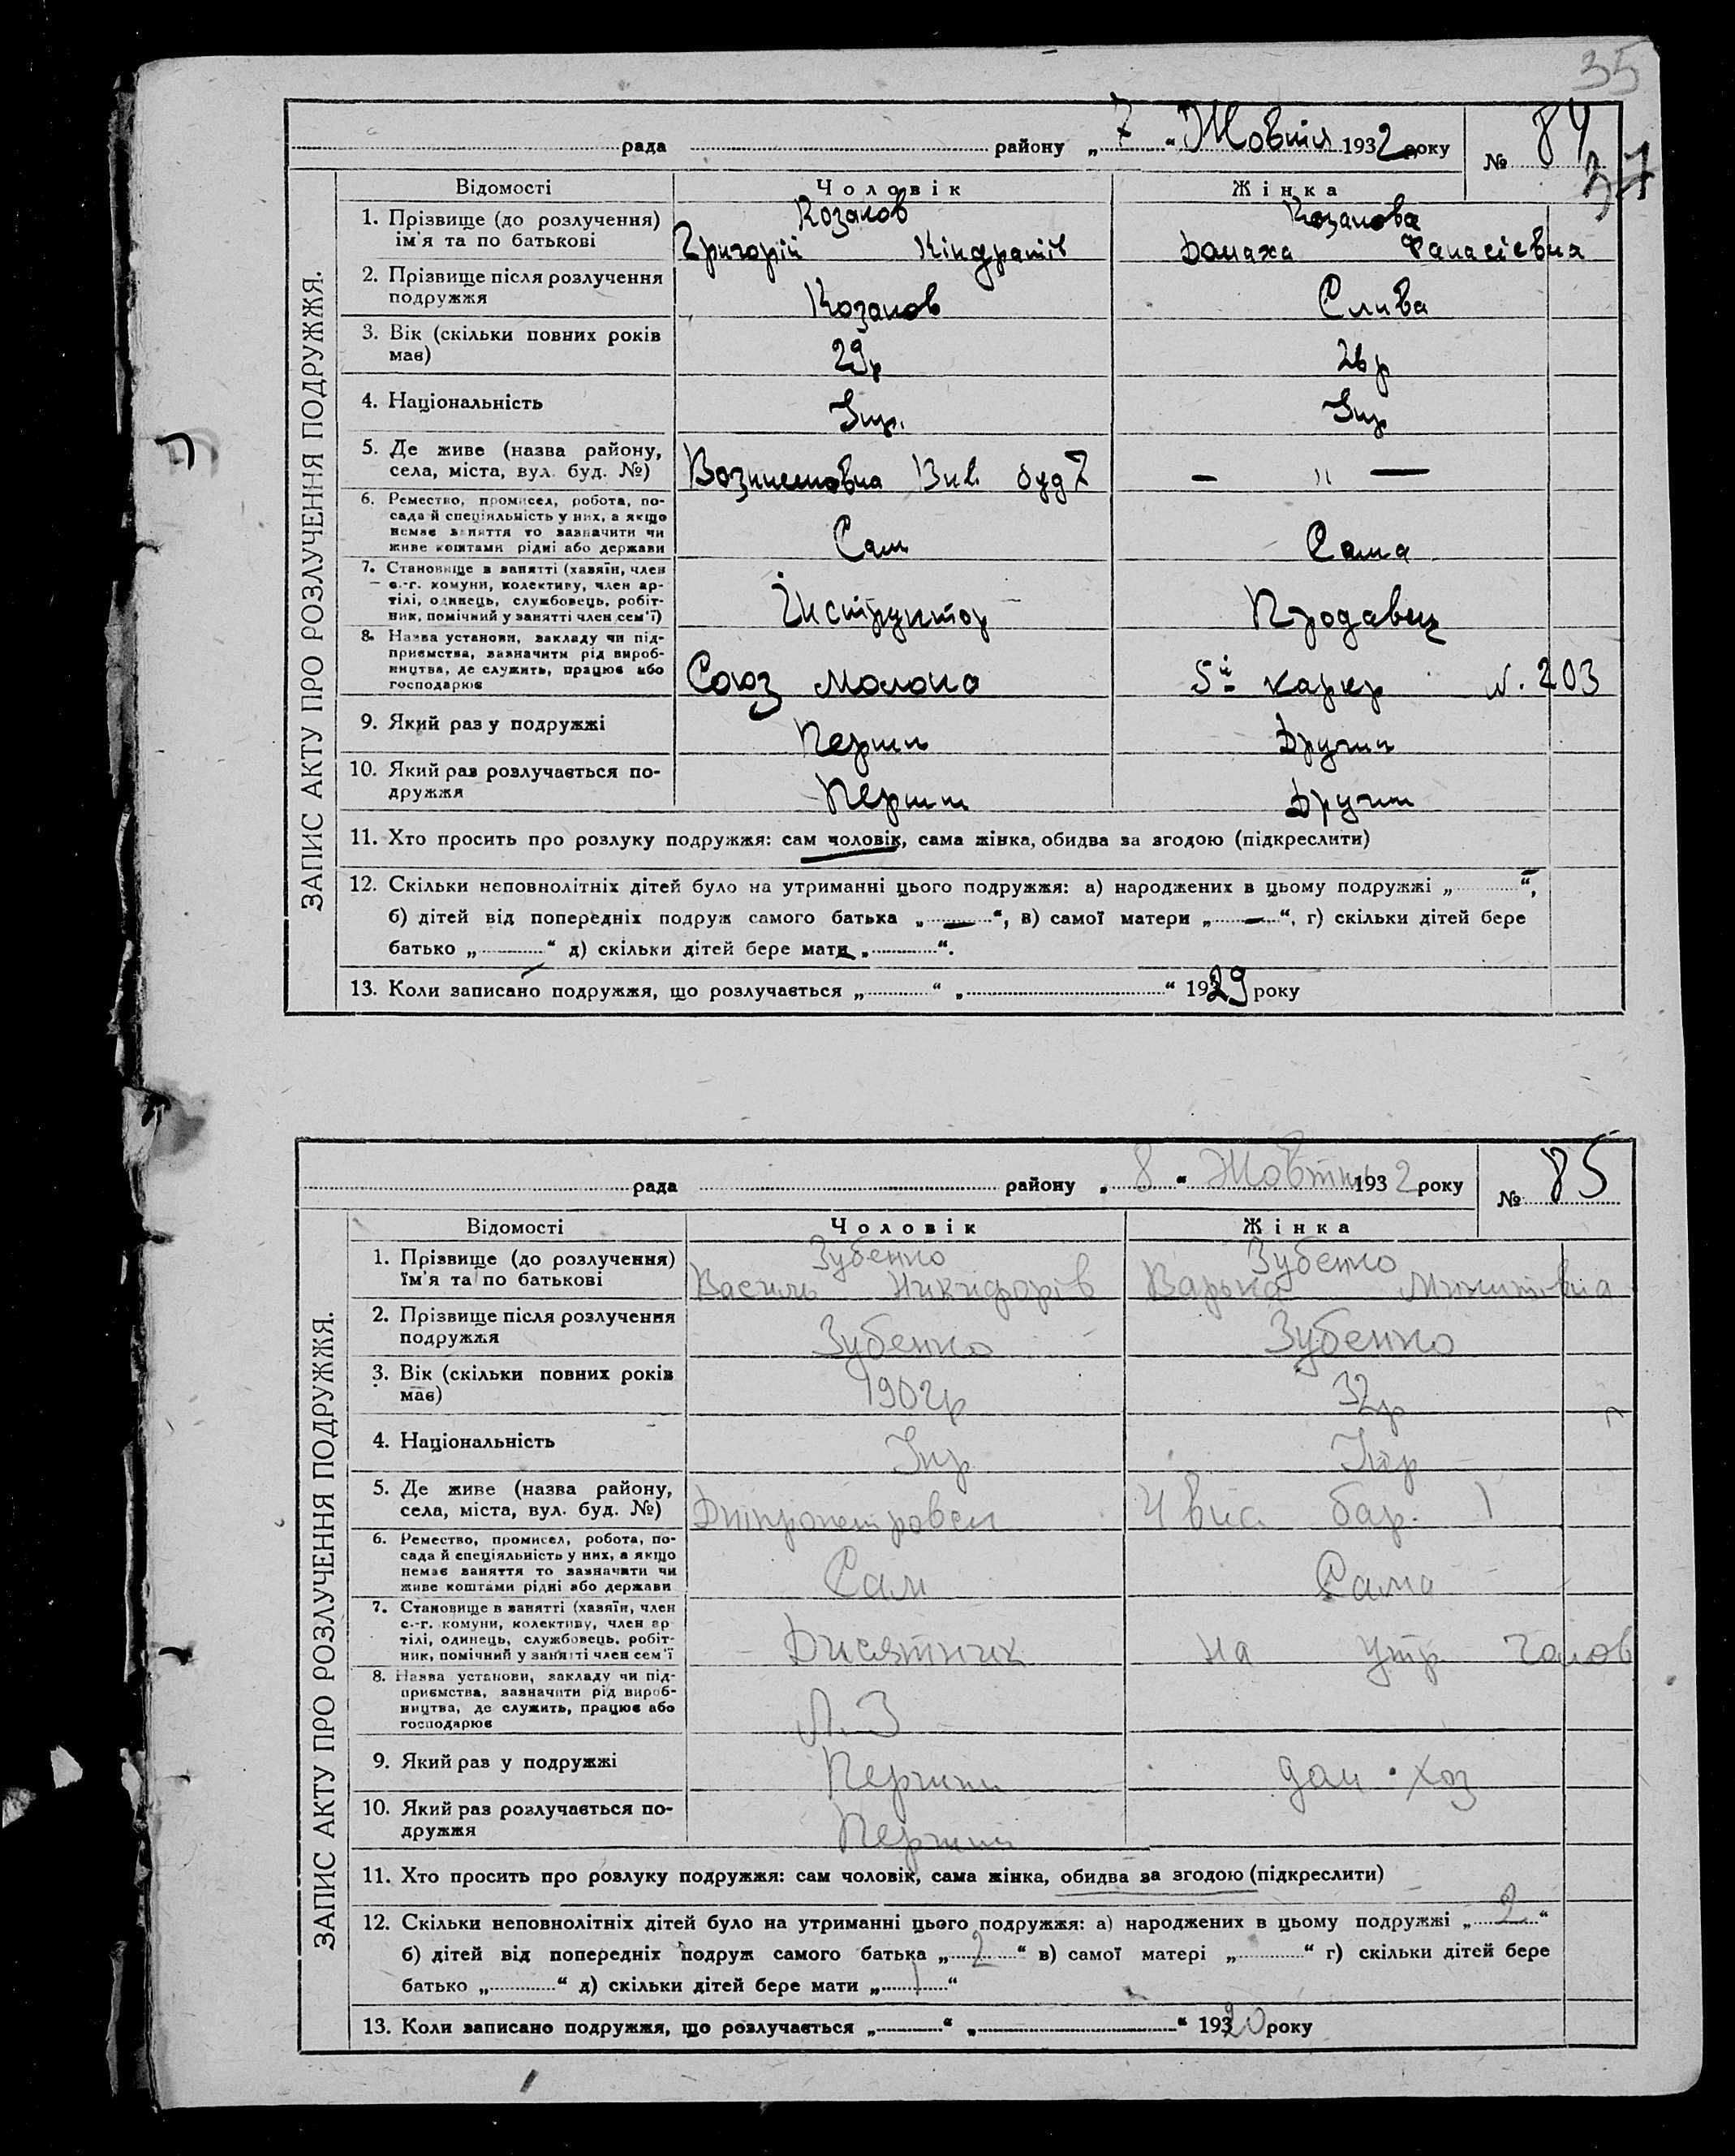 35
рада району „ 7 “ Жовтня 1932 року № 84
37
ЗАПИС АКТУ ПРО РОЗЛУЧЕННЯ ПОДРУЖЖЯ.
Відомості Чоловік Жінка
1. Прізвище (до розлучення) ім'я та по батькові
Козаков Козакова
Григорій Кіндратів Домаха Фанасієвна
2. Прізвище після розлучення подружжя
Козаков Слива
3. Вік (скільки повних років має)
29р 26р
4. Національність
Укр. Укр
5. Де живе (назва району, села, міста, вул. буд. №)
буд 7 — " —
6. Ремество, промисел, робота, посада й спеціяльність у них, а якщо немає заняття то зазначити чи живе коштами рідні або держави
Сам Сама
7. Становище в занятті (хазяїн, член с.-г. комуни, колективу, член артілі, одинець, службовець, робітник, помічний у занятті член сем'ї)
Інструктор Продавец
8. Назва установи, закладу чи підприємства, зазначити рід виробництва, де служить, працює або господарює
Союз молока 5й №. 203
9. Який раз у подружжі
Перши Други
10. Який раз розлучається подружжя
Перши Други
11. Хто просить про розлуку подружжя: сам чоловік, сама жінка, обидва за згодою (підкреслити)
12. Скільки неповнолітніх дітей було на утриманні цього подружжя: а) народжених в цьому подружжі „ — “,
б) дітей від попередніх подруж самого батька „ — “, в) самої матери „ — “, г) скільки дітей бере
батько „ — “ д) скільки дітей бере мати „ “.
13. Коли записано подружжя, що розлучається „ “ „ “ 1929 року
рада району „ 8 “ Жовтня 1932 року № 85
ЗАПИС АКТУ ПРО РОЗЛУЧЕННЯ ПОДРУЖЖЯ.
Відомості Чоловік Жінка
1. Прізвище (до розлучення) їм'я та по батькові
Зубенко Зубенко
Василь Никифорів Варька
2. Прізвище після розлучення подружжя
Зубенко Зубенко
3. Вік (скільки повних років має)
32р
4. Національність
Укр Укр
5. Де живе (назва району, села, міста, вул. буд. №)
Дніпропетровськ бар. 1
6. Ремество, промисел, робота, посада й спеціяльність у них, а якщо немає заняття то зазначити чи живе коштами рідні або держави
Сам Сама
7. Становище в занятті (хазяїн, член с.-г. комуни, колективу, член артілі, одинець, службовець, робітник, помічний у занятті член сем'ї
Дисятник на утр. Чолов
8. Назва установи, закладу чи підприємства, зазначити рід виробництва, де служить, працює або господарює
9. Який раз у подружжі
Перший дом. хоз
10. Який раз розлучається подружжя
Перший
11. Хто просить про розлуку подружжя: сам чоловік, сама жінка, обидва за згодою (підкреслити)
12. Скільки неповнолітніх дітей було на утриманні цього подружжя: а) народжених в цьому подружжі „ 2 “
б) дітей від попередніх подруж самого батька „ 2 “ в) самої матері „ “ г) скільки дітей бере
батько „ “ д) скільки дітей бере мати „ 1 “
13. Коли записано подружжя, що розлучається „ “ „ “ 1920 року